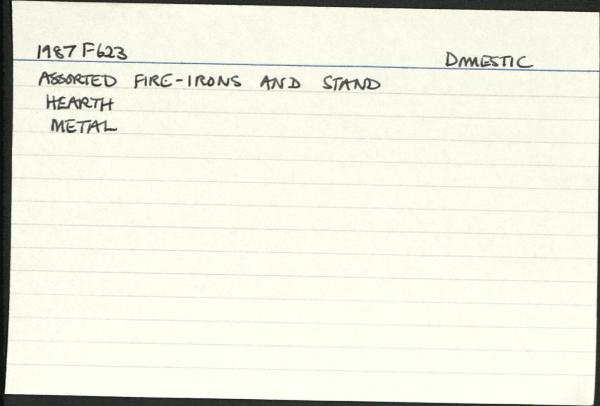 1987 F623 DOMESTIC
ASSORTED FIRE-IRONS AND STAND
HEARTH
METAL